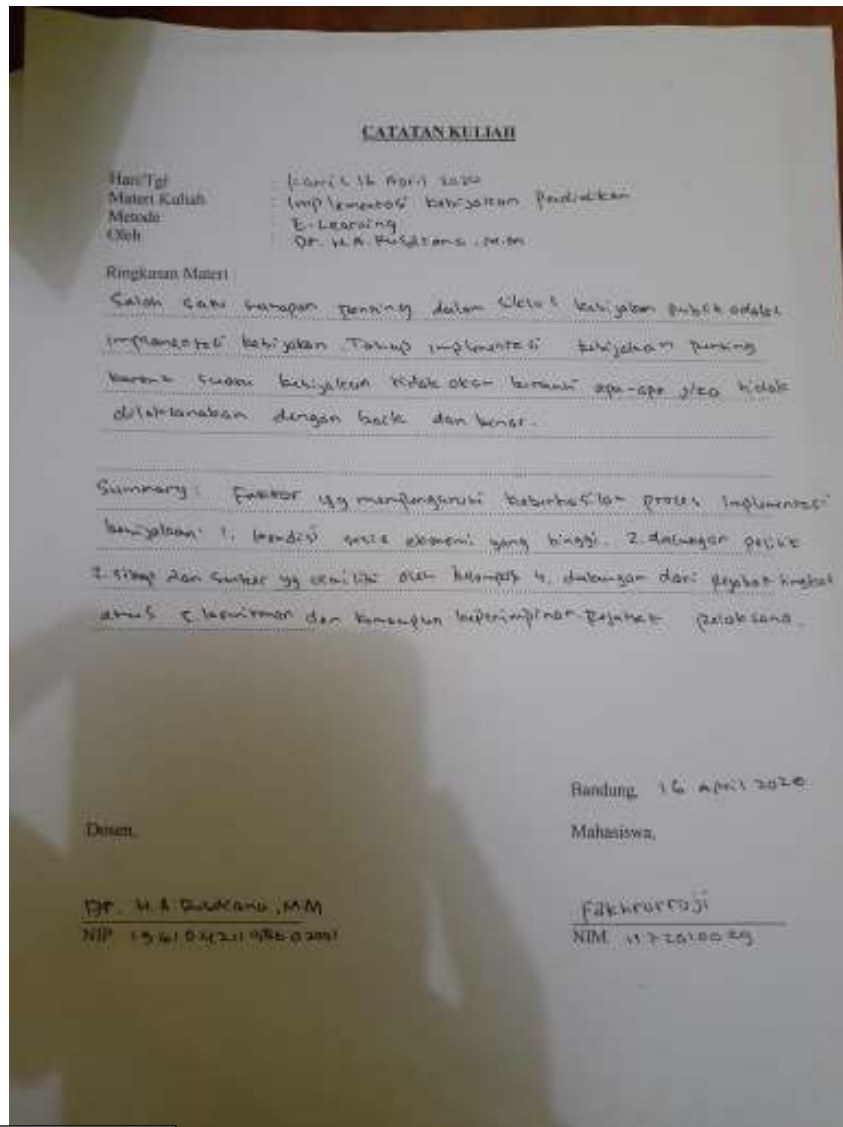 CATATAN KULIAH
Hari/Tgl : Kamis 16 April 2020
Materi Kuliah : Implementasi kebijakan Pendidikan
Metode : E-Learning
Oleh : Dr. H.A. Rusdiana, M.M
Ringkasan Materi :
Salah satu tahapan penting dalam siklus kebijakan publik adalah
implementasi kebijakan. Tahap implementasi kebijakan penting
karena suatu kebijakan tidak akan berarti apa-apa jika tidak
dilaksanakan dengan baik dan benar.
Summary: Faktor yg mempengaruhi keberhasilan proses implementasi
kebijakan: 1. kondisi sosio ekonomi yang tinggi. 2. dukungan politik
3. sikap dan sumber yg dimiliki oleh kelompok 4. dukungan dari pejabat tingkat
atas 5 komitmen dan kepemimpinan pejabat pelaksana.
Bandung, 16 April 2020
Dosen, Mahasiswa,
Dr. H A Rusdiana, MM Fakhrurroji
NIP NIM